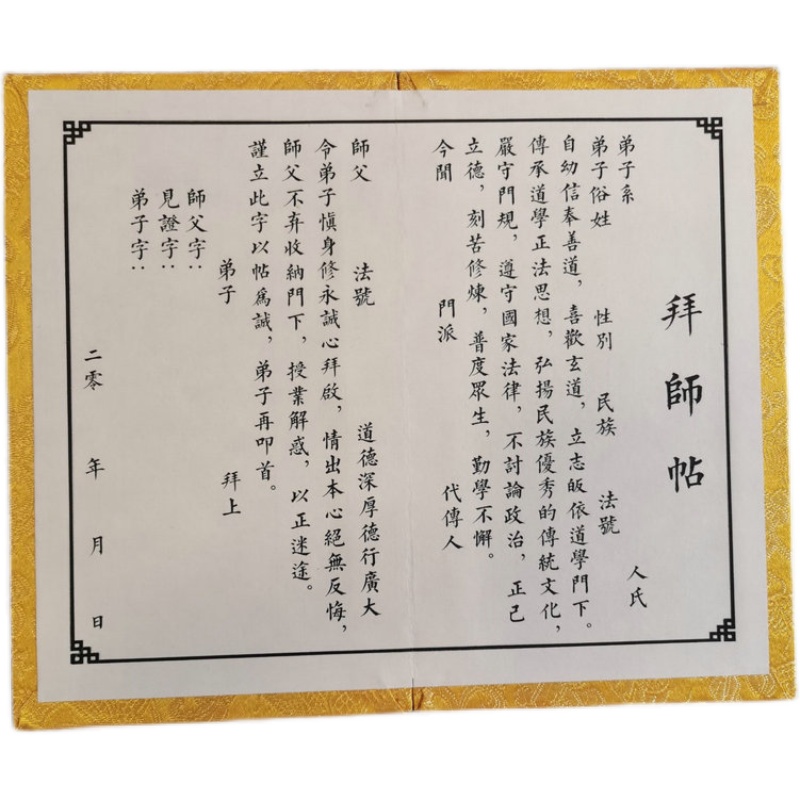 拜師帖
弟子系 人氏
弟子俗姓 性別 民族 法號
自幼信奉善道，喜歡玄道，立志皈依道學門下。
傳承道學正法思想，弘揚民族優秀的傳統文化，
嚴守門規，遵守國家法律，不討論政治，正己
立德，刻苦修煉，普度眾生，勤學不懈。
今聞 門派 代傳人
師父 法號 道德深厚德行廣大
令弟子慎身修永誠心拜啟，情出本心絕無反悔，
師父不弃收納門下，授業解惑，以正迷途。
謹立此字以帖為誠，弟子再叩首。
弟子 拜上
師父字：
見證字：
弟子字：
二零 年 月 日